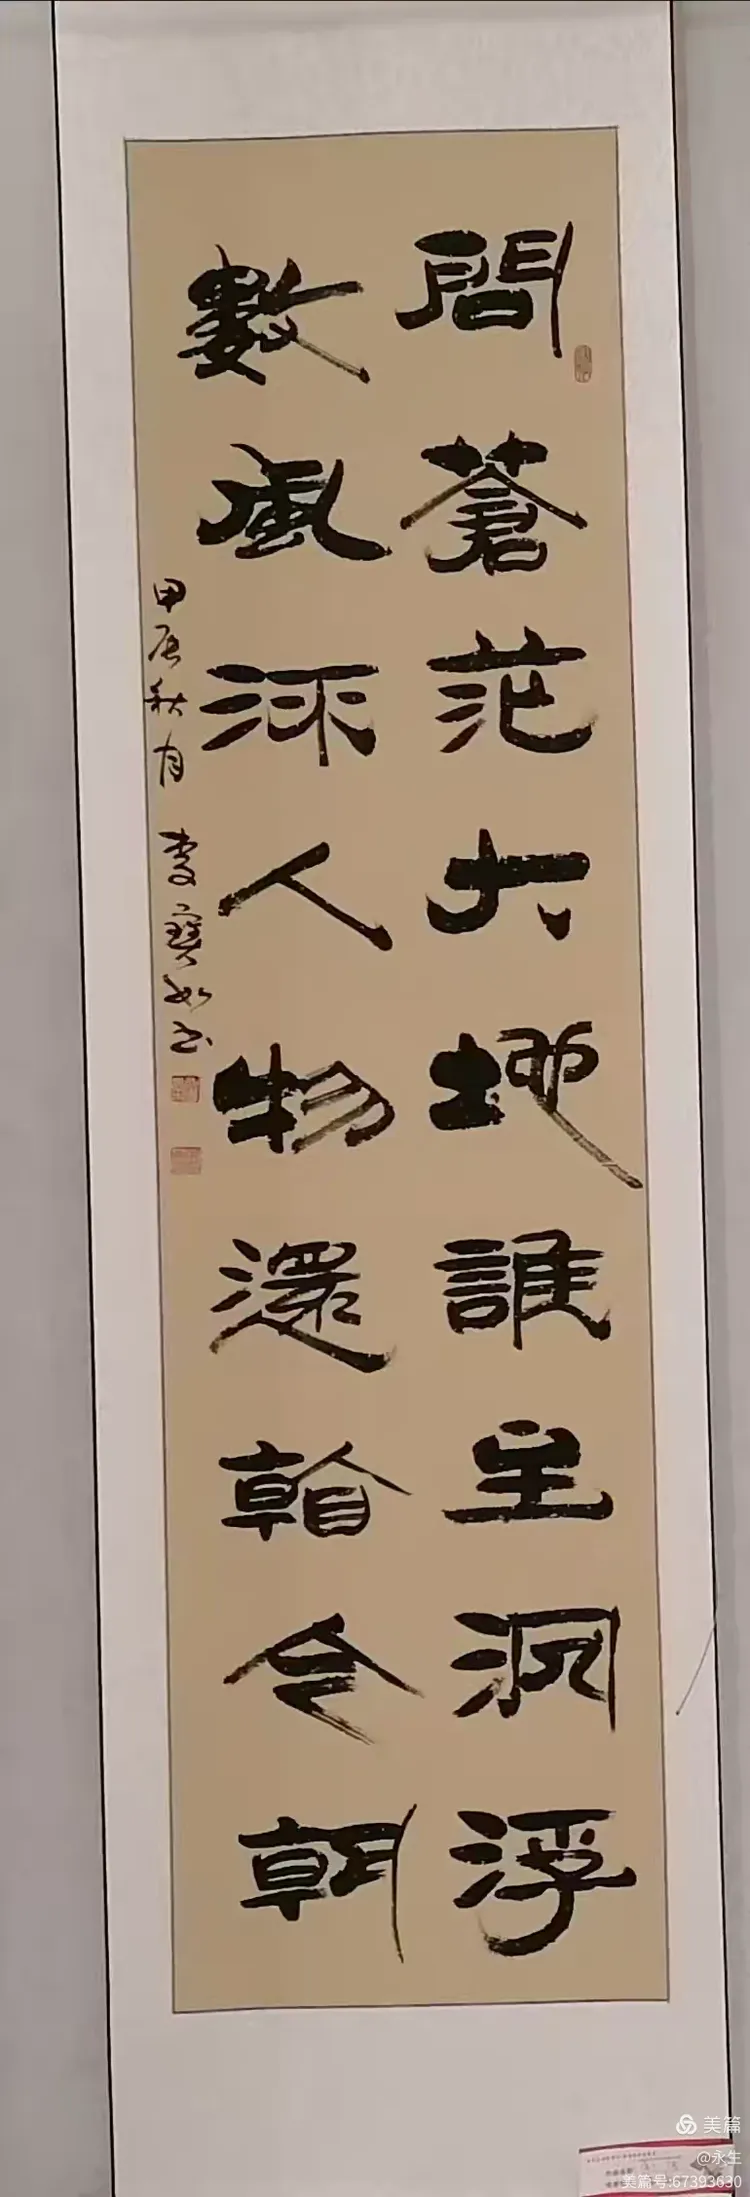 問蒼茫大地誰主沉浮
數風流人物還看今朝
甲辰秋月 寶如书
美篇
@永生
美篇号:67393630